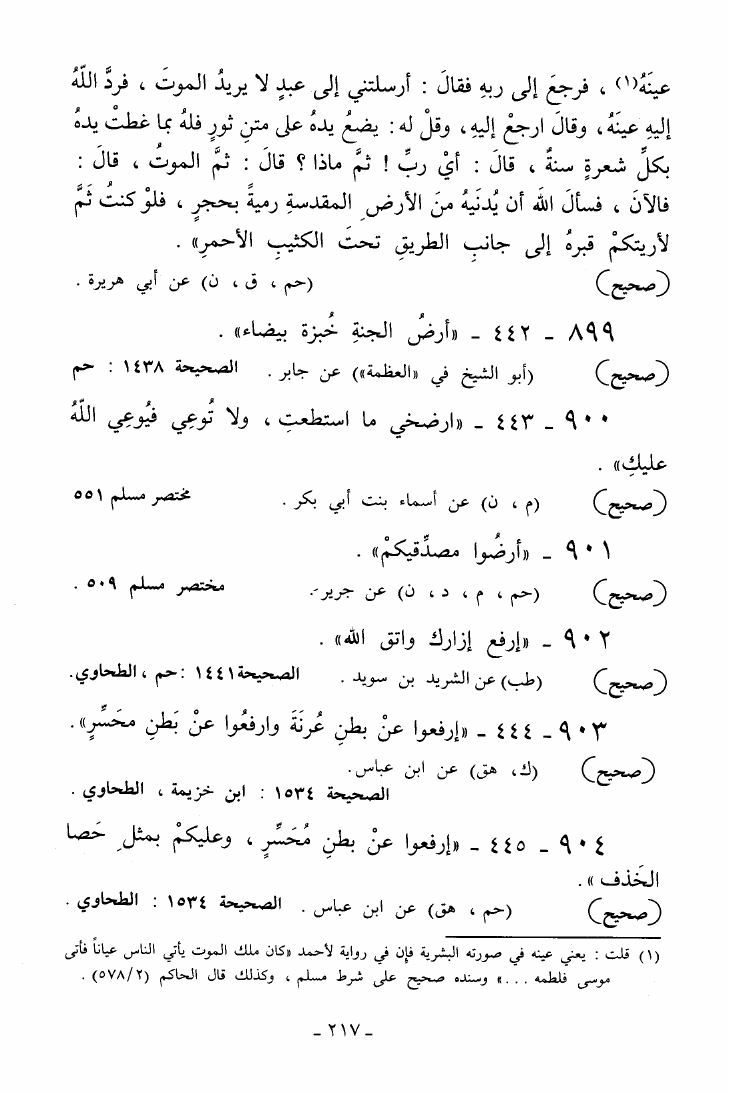 عينَهُ(١) ، فرجعَ إلى ربهِ فقالَ : أرسلتني إلى عبدٍ لا يريدُ الموتَ ، فردَّ اللّهُ
إليهِ عينَهُ، وقالَ ارجعْ إليهِ، وقلْ له: يضعُ يدهُ على متنِ ثورٍ فلهُ بما غطتْ يدهُ
بكلِّ شعرةٍ سنةٌ ، قالَ : أيْ ربِّ ! ثمَّ ماذا ؟ قالَ : ثمَّ الموتُ ، قالَ :
فالآنَ ، فسألَ اللّه أن يُدنَيهُ منَ الأرضِ المقدسةِ رميةً بحجرٍ ، فلوْ كنتُ ثَمَّ
لأريتكمْ قبرهُ إلى جانبِ الطريقِ تحتَ الكثيبِ الأحمرِ» .
(صحيح) (حم ، ق ، ن) عن أبي هريرة .
٨٩٩ - ٤٤٢ - «أرضُ الجنةِ خُبزة بيضاء» .
(صحيح) (أبو الشيخ في «العظمة») عن جابر . الصحيحة ١٤٣٨ : حم
٩٠٠ - ٤٤٣ - «ارضخي ما استطعتِ ، ولا تُوعِي فيُوعِي اللّهُ
عليكِ» .
(صحيح) (م ، ن) عن أسماء بنت أبي بكر . مختصر مسلم ٥٥١
٩٠١ - «أرضُوا مصدِّقيكمْ» .
(صحيح) (حم ، م ، د ، ن) عن جرير . مختصر مسلم ٥٠٩ .
٩٠٢ - «إرفع إزارك واتق اللّه» .
(صحيح) (طب) عن الشريد بن سويد . الصحيحة ١٤٤١ : حم ، الطحاوي.
٩٠٣ - ٤٤٤ - «إرفعوا عنْ بطنِ عُرنَةَ وارفعُوا عنْ بَطنِ محَسِّرٍ» .
(صحيح) (ك، هق) عن ابن عباس.
الصحيحة ١٥٣٤ : ابن خزيمة ، الطحاوي .
٩٠٤ - ٤٤٥ - «إرفعوا عنْ بطنِ مُحَسِّرٍ ، وعليكمْ بمثلِ حَصا
الخَذف» .
(صحيح) (حم ، هق) عن ابن عباس . الصحيحة ١٥٣٤ : الطحاوي .
(١) قلت : يعني عينه في صورته البشرية فإن في رواية لأحمد «كان ملك الموت يأتي الناس عياناً فأتى
موسى فلطمه ...» وسنده صحيح على شرط مسلم ، وكذلك قال الحاكم (٥٧٨/٢) .
- ٢١٧ -